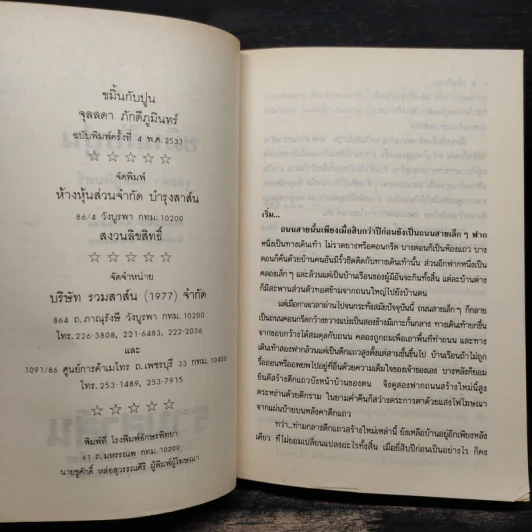 ขมิ้นกับปูน
จุลลดา ภักดีภูมินทร์
ฉบับพิมพ์ครั้งที่ 4 พ.ศ. 2533
☆ ☆ ☆ ☆ ☆
จัดพิมพ์
ห้างหุ้นส่วนจำกัด บำรุงสาส์น
86/4 วังบูรพา กทม. 10200
สงวนลิขสิทธิ์
☆ ☆ ☆ ☆ ☆
จัดจำหน่าย
บริษัท รวมสาส์น (1977) จำกัด
864 ถ.ภาณุรังษี วังบูรพา กทม. 10200
โทร. 226-3808, 221-6483, 222-2036
และ
1091/86 ศูนย์การค้าเมโทร ถ.เพชรบุรี 33 กทม. 10400
โทร. 253-1489, 253-7915
☆ ☆ ☆ ☆ ☆
พิมพ์ที่ โรงพิมพ์อักษรพิทยา
61 ถ.มหรรณพ กทม. 10200
นายชูศักดิ์ หล่อสุวรรณศิริ ผู้พิมพ์ผู้โฆษณา
เริ่ม...
ถนนสายนั้นเพียงเมื่อสิบกว่าปีก่อนยังเป็นถนนสายเล็ก ๆ ฟาก
หนึ่งเป็นทางเดินเท้า ไม่ราดยางหรือคอนกรีต บางตอนก็เป็นห้องแถว บาง
ตอนก็คืนด้วยบ้านคนอันมีรั้วชิดติดกับทางเดินเท้านั้น ส่วนอีกฟากหนึ่งเป็น
คลองเล็ก ๆ และล้วนแต่เป็นบ้านเรือนของผู้มีอันจะกินทั้งสิ้น แต่ละบ้านต่าง
ก็มีสะพานส่วนตัวทอดข้ามจากถนนใหญ่ไปยังบ้านตน
แต่เมื่อกาลเวลาผ่านไปจนกระทั่งสมัยปัจจุบันนี้ ถนนสายเล็ก ๆ ก็กลาย
เป็นถนนคอนกรีตกว้างขวางแบ่งเป็นสองข้างมีเกาะกั้นกลาง ทางเดินเท้ายกขึ้น
จากขอบกว้างได้สมดุลกับถนน คลองถูกถมเพื่อเอาพื้นที่ทำถนน และทาง
เดินเท้าสองฟากล้วนแต่เป็นตึกแถวสูงตั้งแต่สามชั้นขึ้นไป บ้านเรือนถ้าไม่ถูก
รื้อถอนหรืออพยพไปอยู่ที่อื่นด้วยความเต็มใจของเจ้าของเอง บางหลังก็ยอม
ยินดีสร้างตึกแถวบังหน้าบ้านของตน จึงดูสองฟากถนนสร้างใหม่นี้สูง
ตระหง่านด้วยตึกราม ในยามค่ำคืนก็สว่างตระการตาด้วยแสงไฟโฆษณา
จากแผ่นป้ายบนหลังคาตึกแถว
ทว่า...ท่ามกลางตึกแถวสร้างใหม่เหล่านี้ ยังเหลือบ้านอยู่อีกเพียงหลัง
เดียว ที่ไม่ยอมเปลี่ยนแปลงอะไรทั้งสิ้น เมื่อยี่สิบปีก่อนเป็นอย่างไร ก็คง